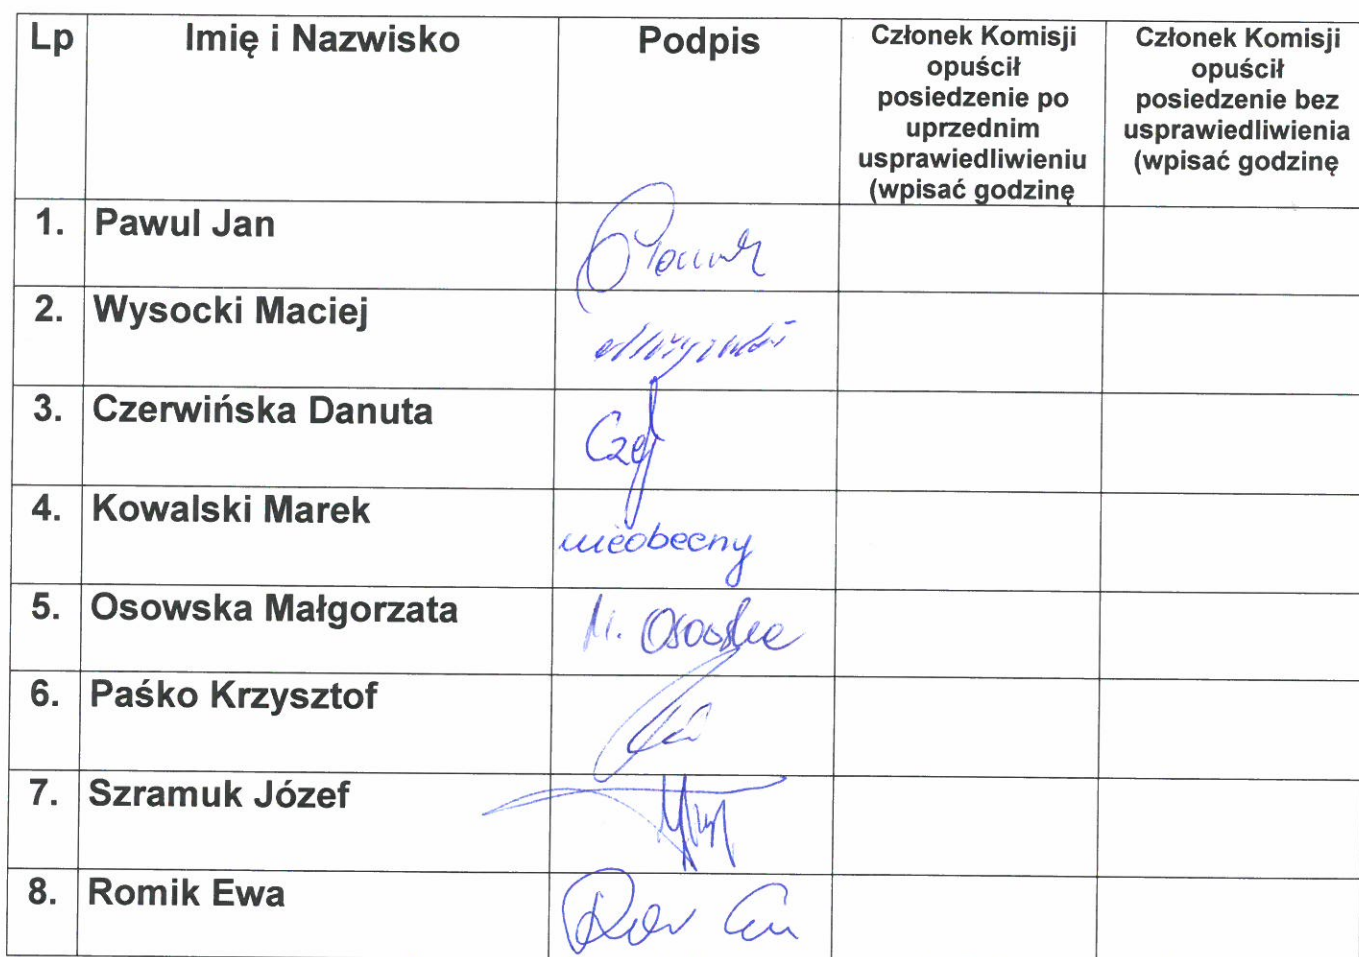 Lp Imię i Nazwisko Podpis Członek Komisji opuścił posiedzenie po uprzednim usprawiedliwieniu (wpisać godzinę Członek Komisji opuścił posiedzenie bez usprawiedliwienia (wpisać godzinę
1. Pawul Jan
2. Wysocki Maciej
3. Czerwińska Danuta
4. Kowalski Marek nieobecny
5. Osowska Małgorzata M. Osowska
6. Paśko Krzysztof
7. Szramuk Józef
8. Romik Ewa